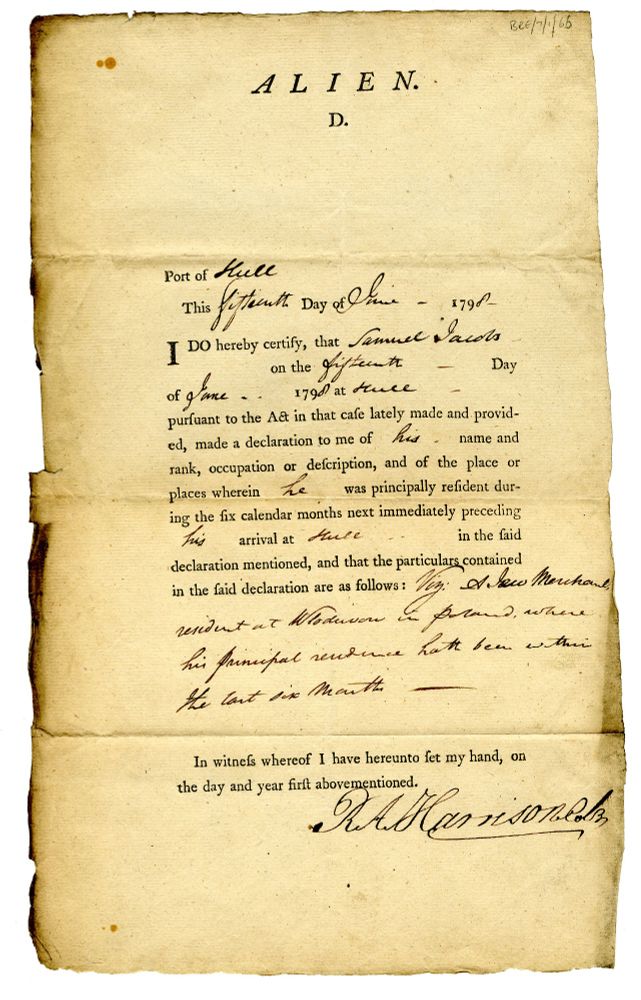 BRE/7/1/6b
ALIEN.
D.
Port of Hull
This fifteenth Day of June - 1798-
I DO hereby certify, that Samuel Jacobs
on the fifteenth - Day
of June - - 1798 at Hull -
pursuant to the Act in that caſe lately made and provid-
ed, made a declaration to me of his - name and
rank, occupation or deſcription, and of the place or
places wherein he was principally reſident dur-
ing the ſix calendar months next immediately preceding
his arrival at Hull - - in the ſaid
declaration mentioned, and that the particulars contained
in the ſaid declaration are as follows: Viz: A Jew Merchant,
resident at in Poland, where
his principal residence hath been within
the last six Months —
In witneſs whereof I have hereunto ſet my hand, on
the day and year firſt abovementioned.
R. A. Harrison